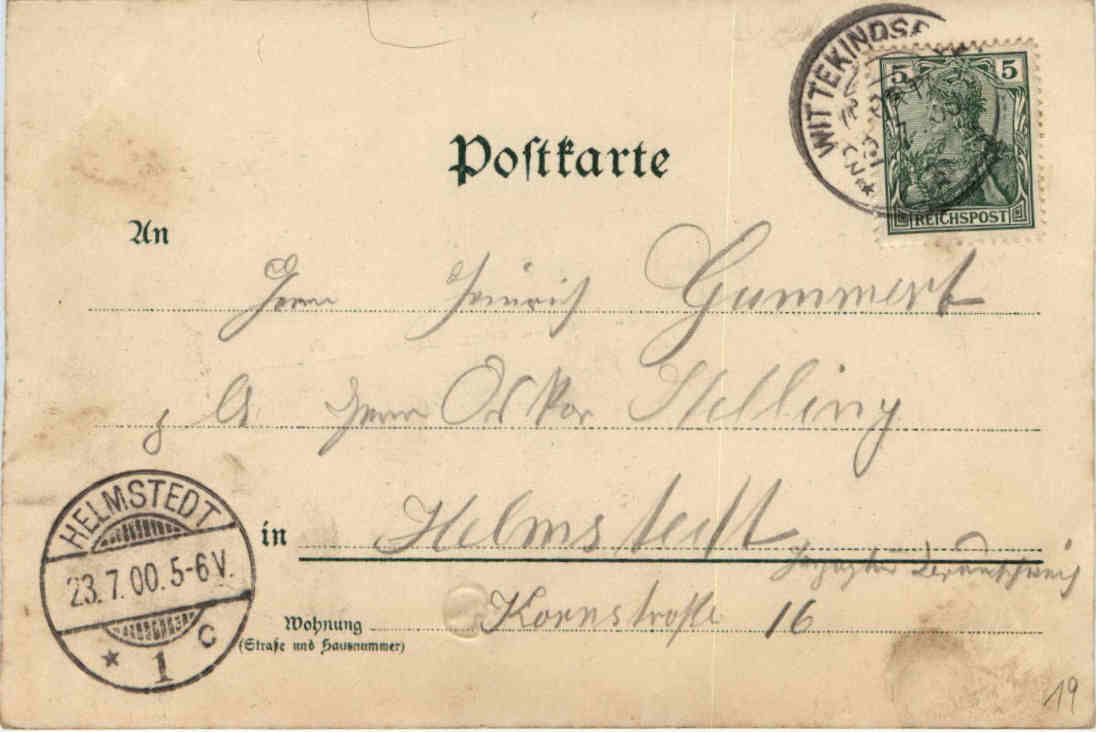 WITTEKINDSB
5 5
REICHSPOST
Postkarte
An
Herrn Heinrich Gummert
Herrn Oskar Helling
HELMSTEDT
23.7.00.5-6V.
* 1 c
in Helmstedt
Herzogthum Braunschweig
Wohnung Kornstraße 16
(Straße und Hausnummer)
19